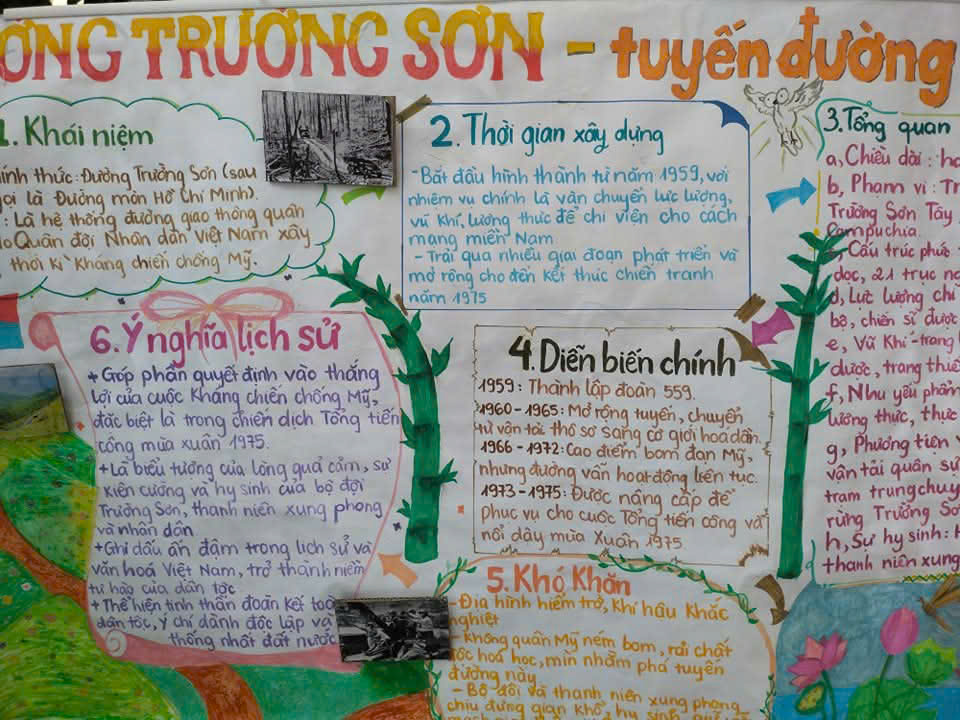 ƯỜNG TRƯỜNG SƠN - tuyến đường
1. Khái niệm
ính thức: Đường Trường Sơn (sau
gọi là Đường mòn Hồ Chí Minh).
: Là hệ thống đường giao thông quân
do Quân đội Nhân dân Việt Nam xây
thời kì kháng chiến chống Mỹ.
2. Thời gian xây dựng
- Bắt đầu hình thành từ năm 1959, với
nhiệm vụ chính là vận chuyển lực lượng,
vũ khí, lương thực để chi viện cho cách
mạng miền Nam
- Trải qua nhiều giai đoạn phát triển và
mở rộng cho đến kết thúc chiến tranh
năm 1975
3. Tổng quan
a, Chiều dài : h
b, Phạm vi : Tr
Trường Sơn Tây
Campuchia.
Cấu trúc phức
dọc, 21 trục n
d, Lực lượng chí
bộ, chiến sĩ được
e, Vũ Khí - trang
dược, trang thiế
f, Nhu yếu phẩm
lương thực, thực
g, Phương tiện
vận tải quân sự
trạm trung chuy
rừng Trường Sơ
h, Sự hy sinh: H
thanh niên xung
4. Diễn biến chính
1959 : Thành lập đoàn 559.
1960 - 1965: Mở rộng tuyến, chuyển
từ vận tải thô sơ sang cơ giới hoá dần.
1966 - 1972: Cao điểm bom đạn Mỹ,
nhưng đường vẫn hoạt động liên tục.
1973 - 1975: Được nâng cấp để
phục vụ cho cuộc Tổng tiến công và
nổi dậy mùa Xuân 1975.
5. Khó Khăn
- Địa hình hiểm trở, Khí hậu Khắc
nghiệt
- Không quân Mỹ ném bom, rải chất
độc hoá học, mìn nhằm phá tuyến
đường này
- Bộ đội và thanh niên xung phong
chịu đựng gian khổ, hy sinh
6. Ý nghĩa lịch sử
+ Góp phần quyết định vào thắng
lợi của cuộc Kháng chiến chống Mỹ,
đặc biệt là trong chiến dịch Tổng tiến
công mùa xuân 1975.
+ Là biểu tượng của lòng quả cảm, sự
kiên cường và hy sinh của bộ đội
Trường Sơn, thanh niên xung phong
và nhân dân
+ Ghi dấu ấn đậm trong lịch sử và
văn hoá Việt Nam, trở thành niềm
tự hào của dân tộc
+ Thể hiện tinh thần đoàn kết toà
dân tộc, ý chí dành độc lập và
thống nhất đất nước